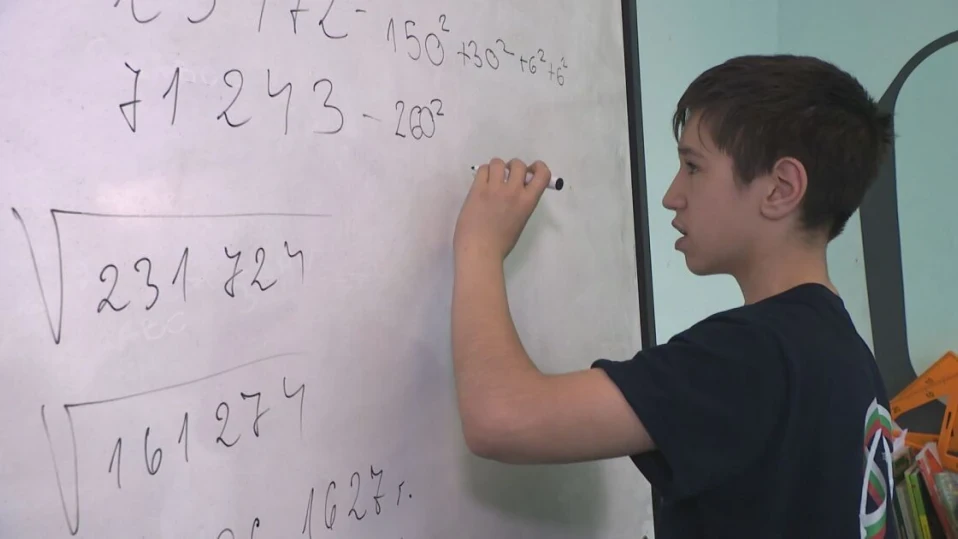 150² + 30² + 6² + 6²
71 243 - 260²
√231 724
√161 274
1627 г.